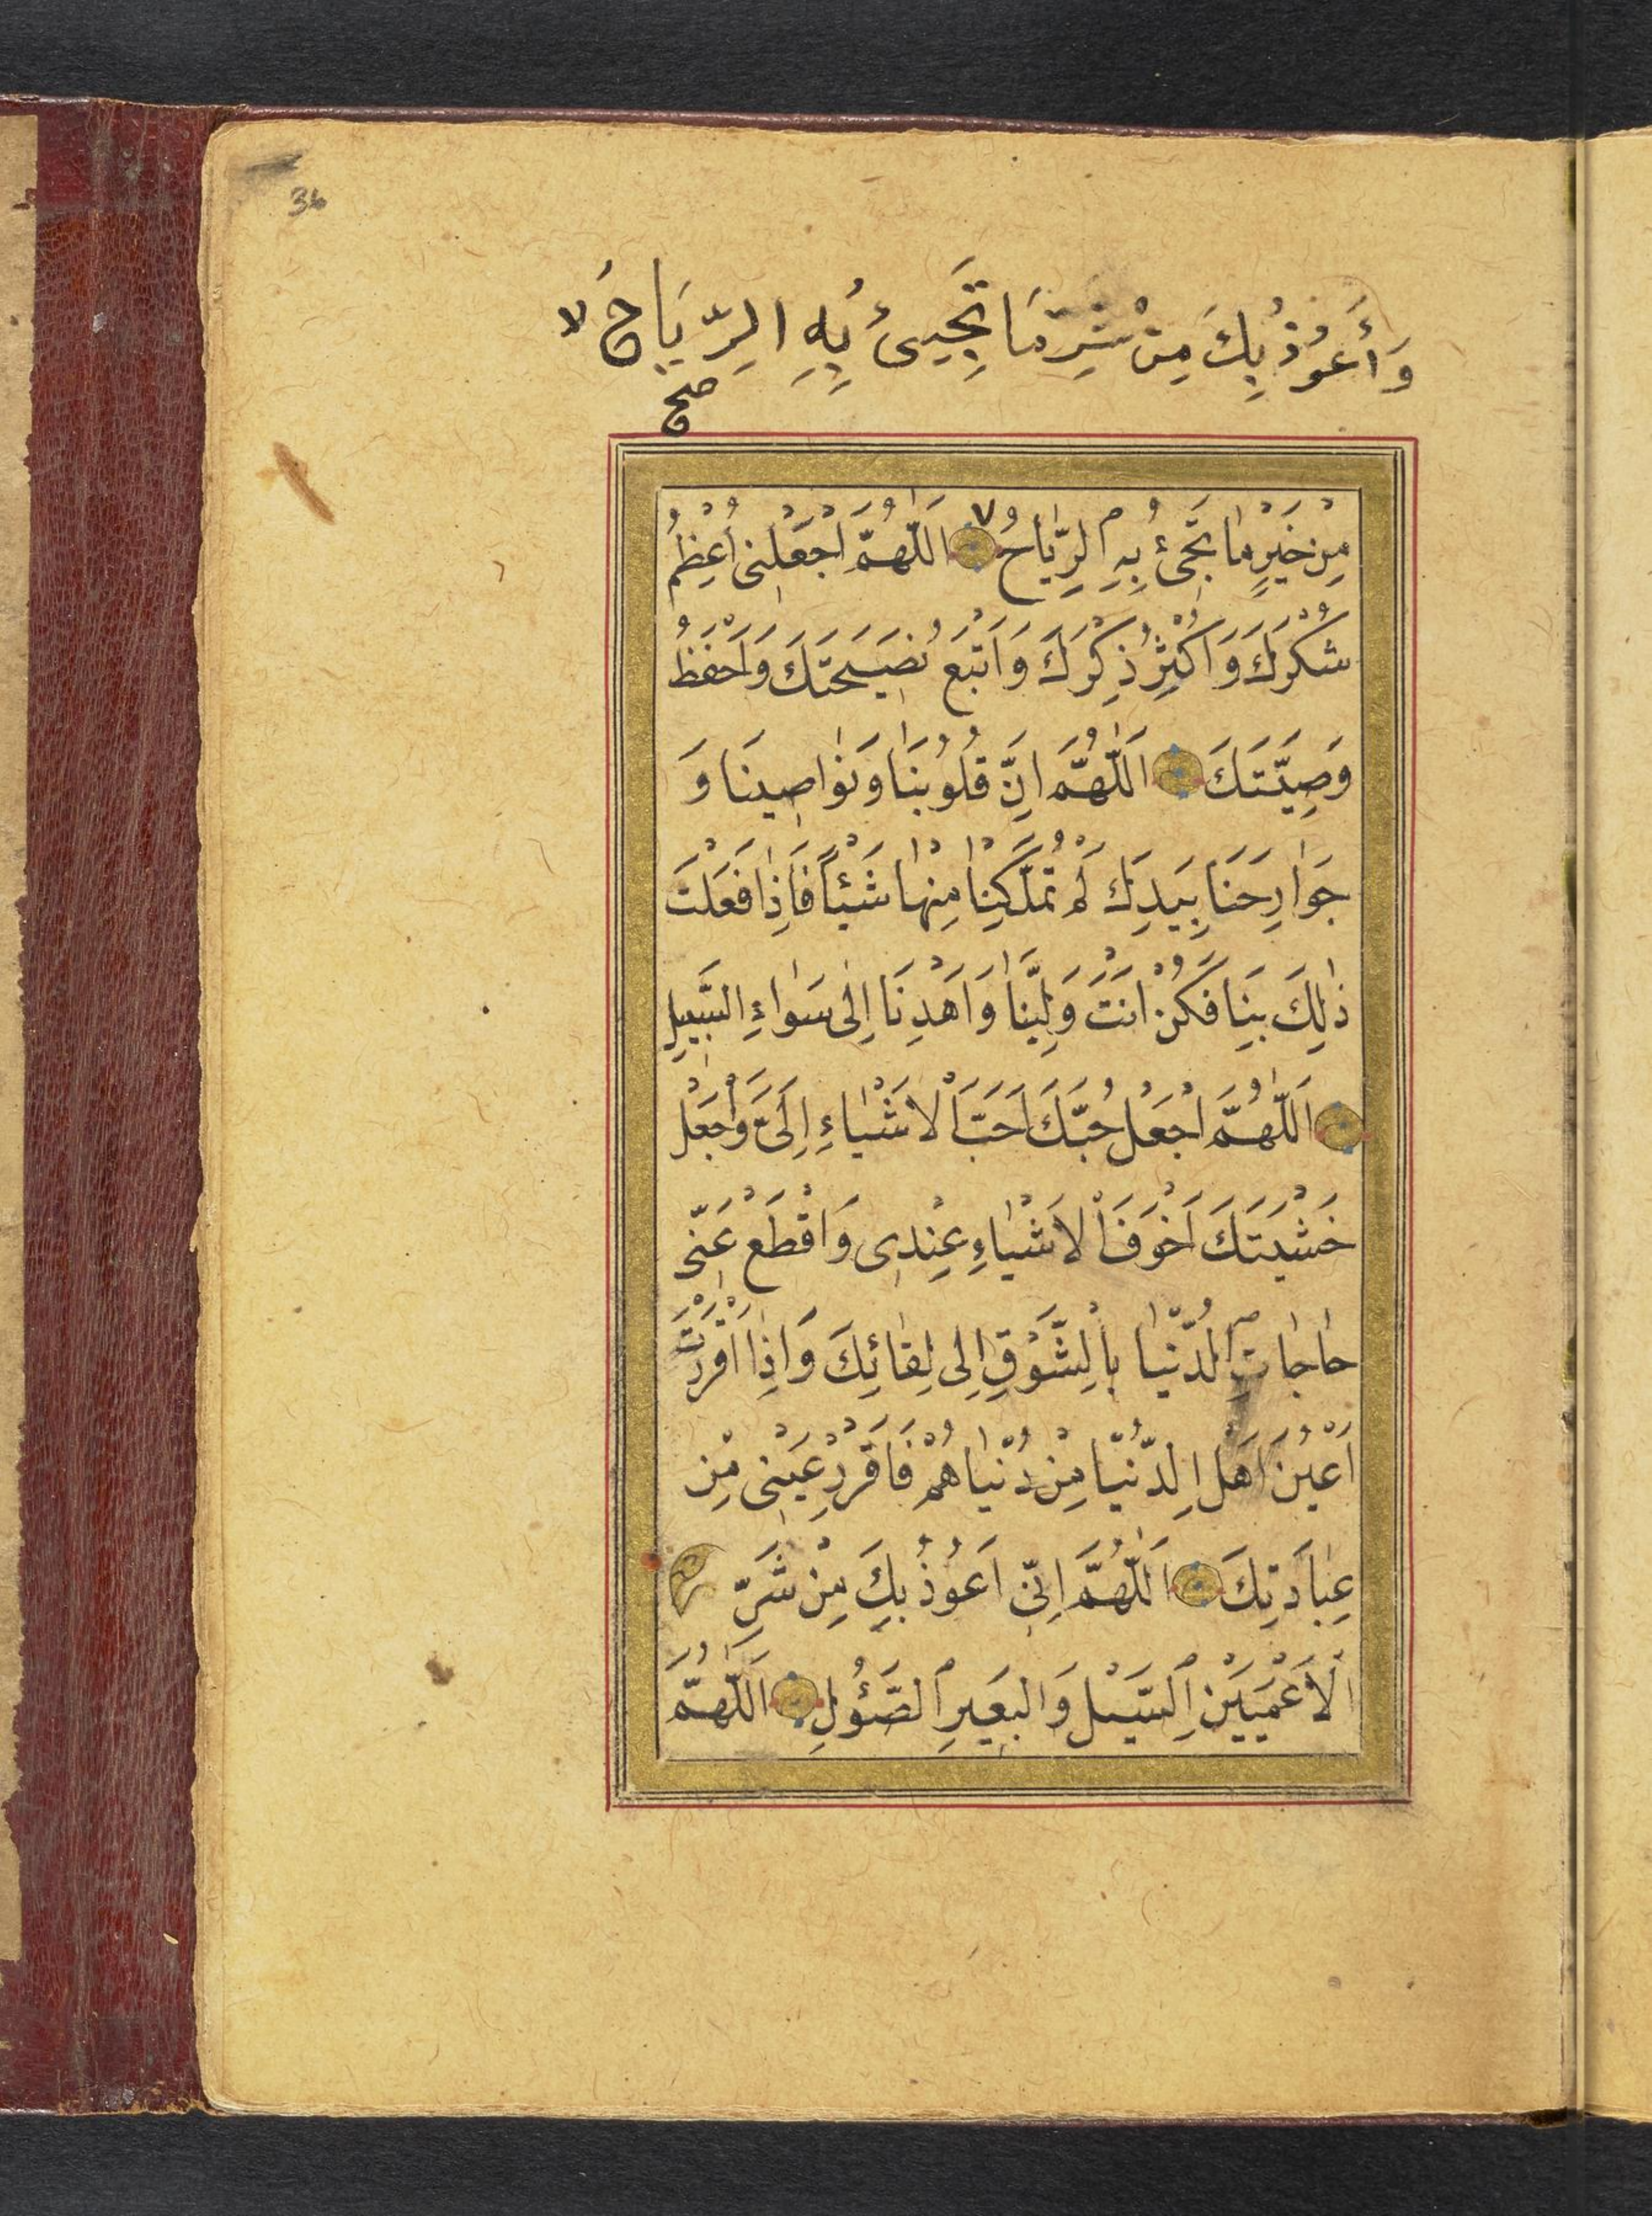 36
وَأَعُوذُ بِكَ مِنْ شَرِّ مَا تَجِيئُ بِهِ الرِّيَاحُ لا
صح
مِنْ خَيْرِ مٰا تَجِئُ بِهِ الرِّيٰاحُ ٧ اَللّٰهُمَّ اجْعَلْنِى اُعَظِّمُ
شُكْرَكَ وَاُكْثِرُ ذِكْرَكَ وَاَتَّبِعُ نَصِيحَتَكَ وَاَحْفَظُ
وَصِيَّتَكَ اَللّٰهُمَّ اِنَّ قُلُوبَنَا وَنَوٰاصِينَا وَ
جَوٰارِحَنَا بِيَدِكَ لَمْ تُمَلِّكْنٰا مِنْهٰا شَيْئاً فَاِذٰا فَعَلْتَ
ذٰلِكَ بِنَا فَكُنْ اَنْتَ وَلِيَّنٰا وَاهْدِنَا اِلٰى سَوٰاءِ السَّبِيلِ
اَللّٰهُمَّ اجْعَلْ حُبَّكَ اَحَبَّ الْاَشْيٰاءِ اِلَىَّ وَاجْعَلْ
خَشْيَتَكَ اَخْوَفَ الْاَشْيٰاءِ عِنْدِى وَاقْطَعْ عَنِّى
حٰاجٰاتِ الدُّنْيٰا بِالشَّوْقِ اِلٰى لِقٰائِكَ وَاِذٰا اَقْرَرْتَ
اَعْيُنَ اَهْلِ الدُّنْيَا مِنْ دُنْيٰاهُمْ فَاَقْرِرْ عَيْنِى مِنْ
عِبٰادَتِكَ اَللّٰهُمَّ اِنِّى اَعُوذُ بِكَ مِنْ شَرِّ
الْاَعْمَيَيْنِ السَّيْلِ وَالْبَعِيرِ الصَّؤُلِ اَللّٰهُمَّ